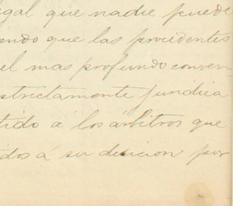 gal que nadie puede
endo que las procidentes
el mas profundo conven
strictamente juridica
tido a los arbitros que
dos á su decicion por